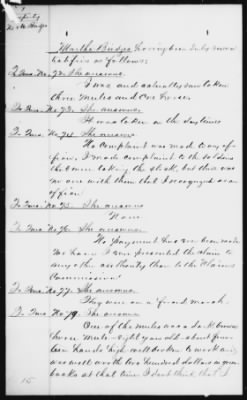 Martha Bridges having been duly sworn
To Ques. No. 72. She answers
I was and actually saw taken
three mules and one horse.
To Ques. No. 73. She answers
It was taken in the daytime
To Ques. No. 74. She answers
No complaint was made to any of-
ficer. I made complaint to the soldiers
the men taking the stock, but there was
no one with them that I recognized as an
officer
To Ques. No. 75. She answers
None
To Ques. No. 76. She answers
No payment has ever been made
me. I never presented the claim to
any other authority than to the Claims
Commission
To Ques. No. 77. She answers
They were on a forced march.
To Ques. No. 78. She answers
One of the mules was a dark brown
horse mule eight years old about four-
teen hands high well broken to work and
was well worth two hundred dollars in green-
backs at that time I dont think that I
15